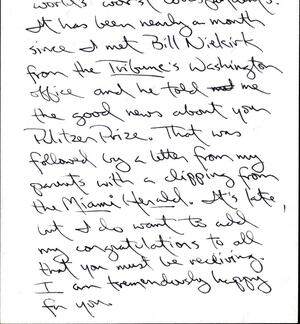 world's worst correspondent.
It has been nearly a month
since I met Bill Niekirk
from the Tribune's Washington
office and he told me
the good news about your
Pulitzer Prize. That was
followed by a letter from my
parents with a clipping from
the Miami Herald. It's late,
but I do want to add
my congratulations to all
that you must be receiving.
I am tremendously happy
for you.